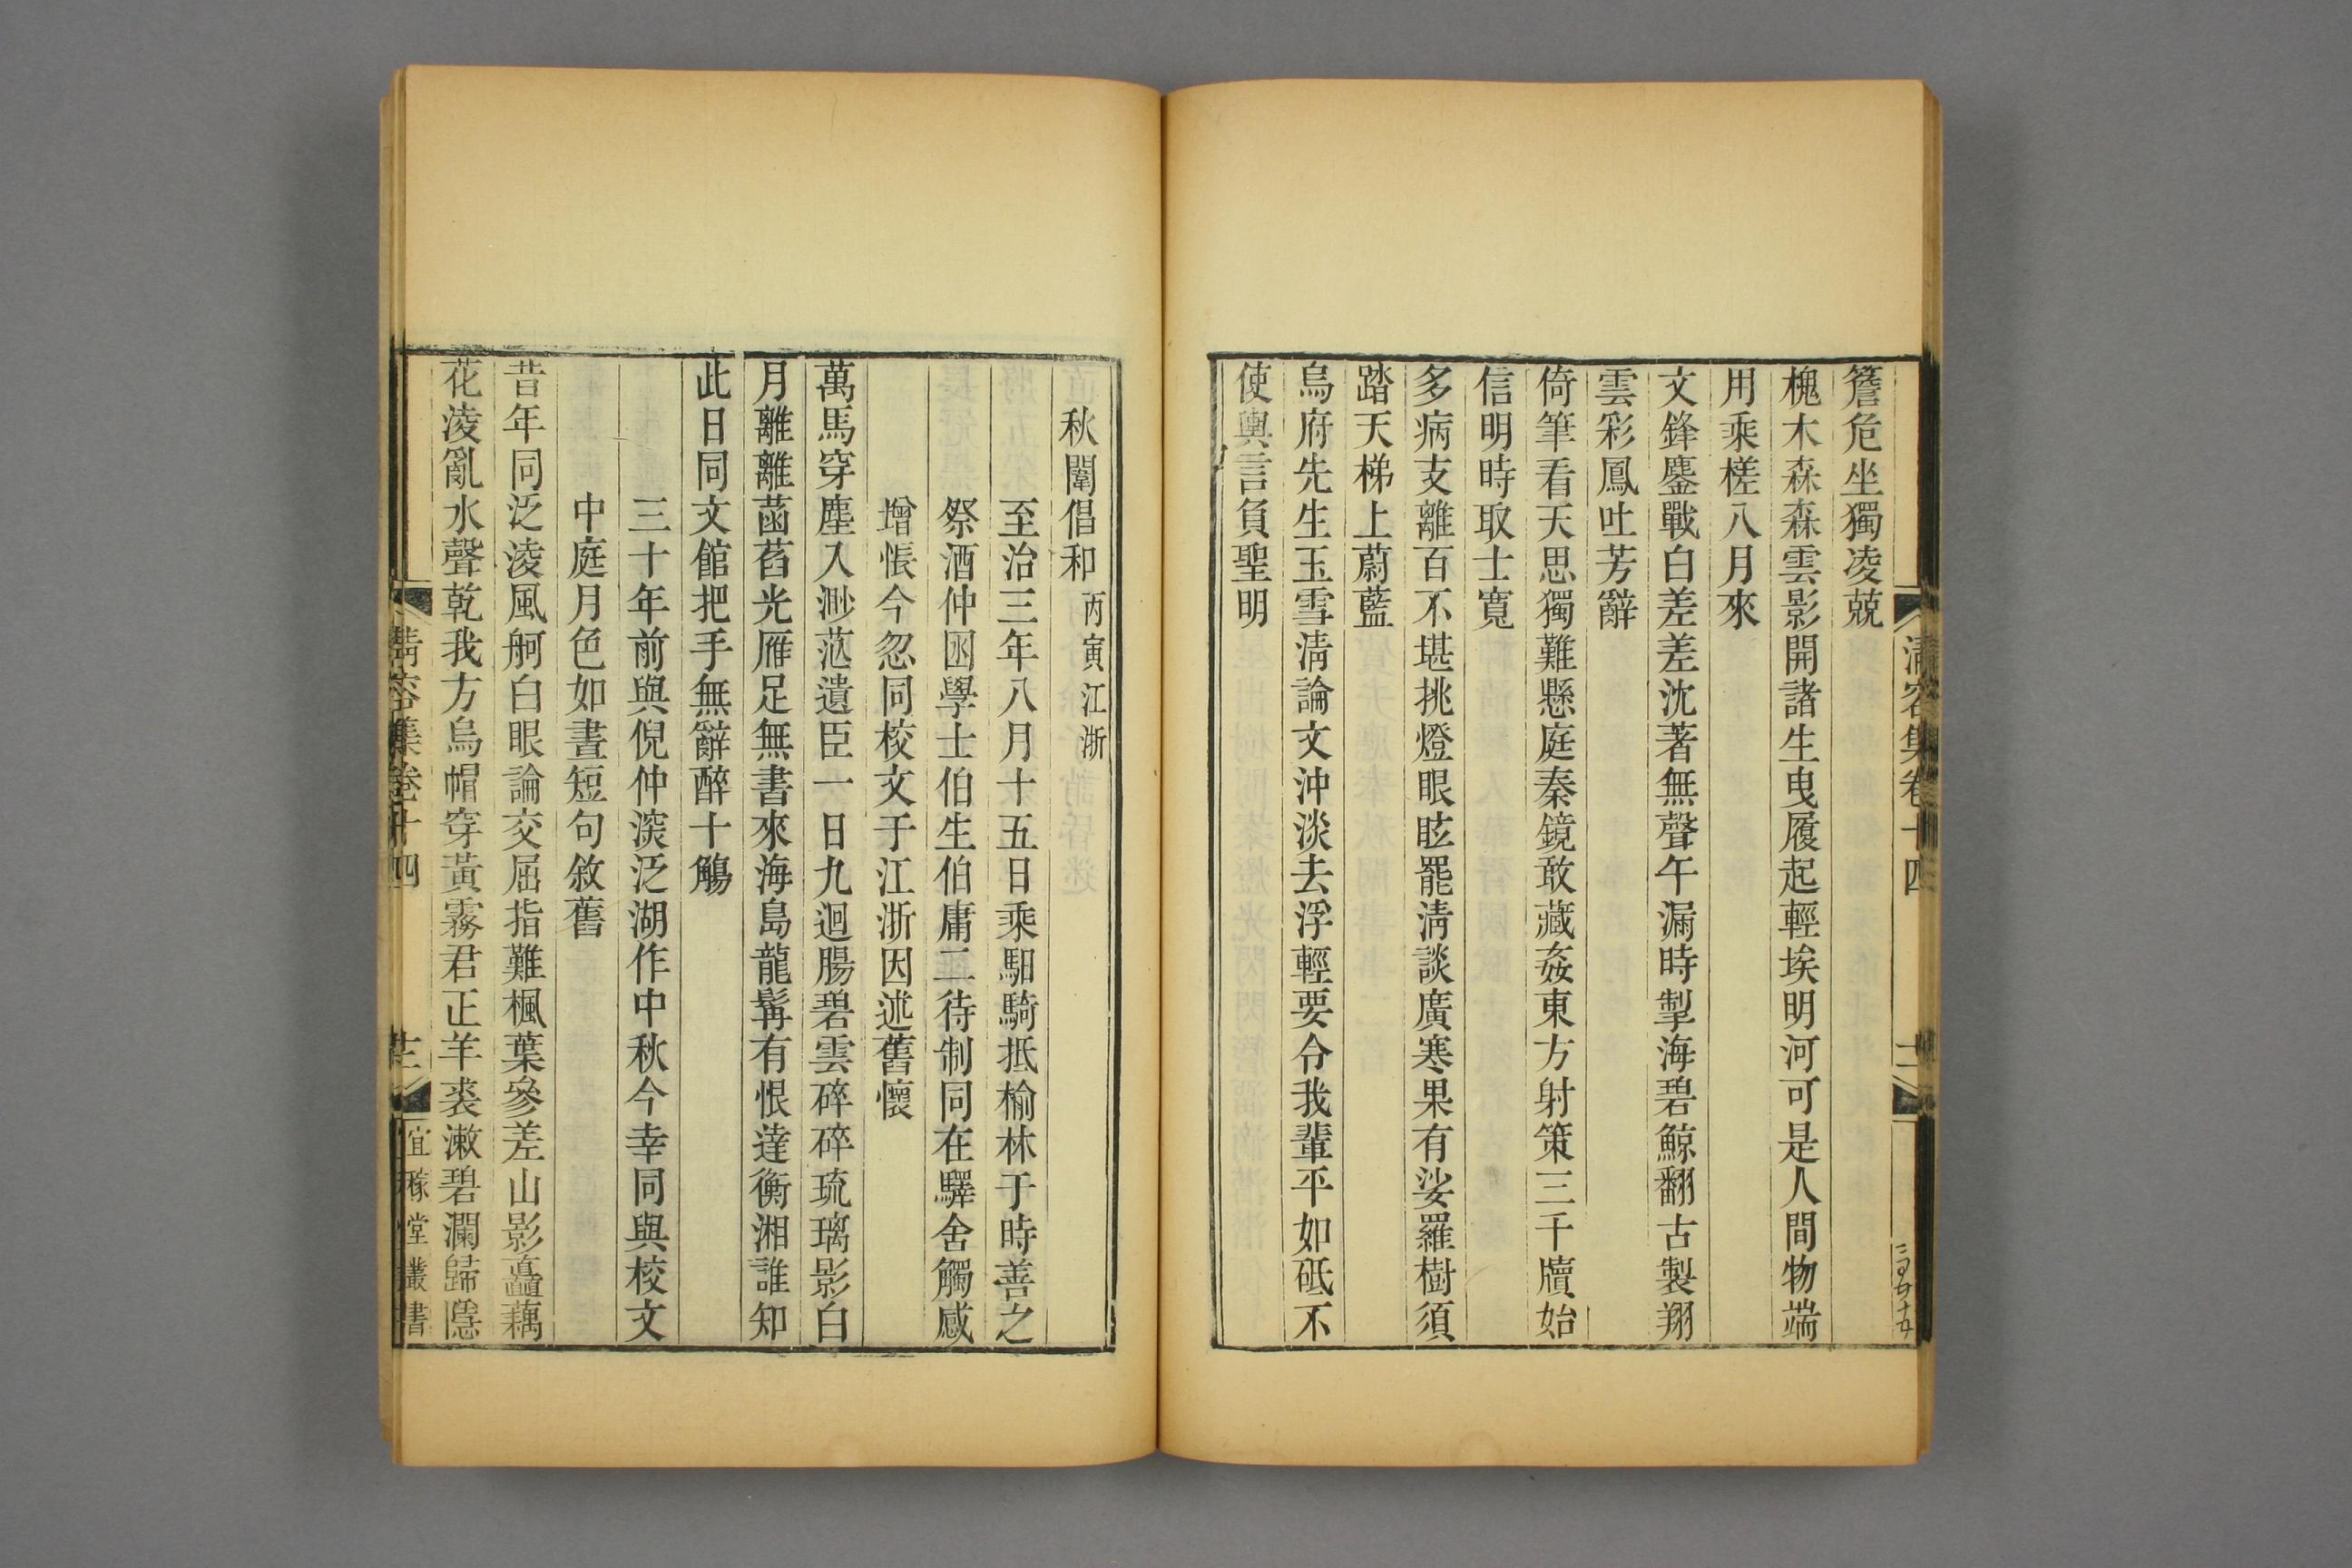 清容集卷十四
簷危坐獨凌兢
槐木森森雲影開諸生曳履起輕埃明河可是人間物端
用乘槎八月來
文鋒鏖戰白差差沈著無聲午漏時掣海碧鯨翻古製翔
雲彩鳳吐芳辭
倚筆看天思獨難懸庭秦鏡敢藏姦東方射策三千牘始
信明時取士寬
多病支離百不堪挑燈眼眩罷清談廣寒果有娑羅樹須
踏天梯上蔚藍
烏府先生玉雪清論文沖淡去浮輕要令我輩平如砥不
使輿言負聖明
秋闈倡和丙寅江浙
至治三年八月十五日乘馹騎抵榆林于時善之
祭酒仲囦學士伯生伯庸二待制同在驛舍觸感
增悵今忽同校文于江浙因述舊懷
萬馬穿塵入渺茫遺臣一日九迴腸碧雲碎碎琉璃影白
月離離菡萏光雁足無書來海島龍髯有恨達衡湘誰知
此日同文館把手無辭醉十觴
三十年前與倪仲深泛湖作中秋今幸同與校文
中庭月色如晝短句敘舊
昔年同泛淩風舸白眼論交屈指難楓葉參差山影矗藕
花淩亂水聲乾我方烏帽穿黃霧君正羊裘漱碧瀾歸隱
清容集卷十四
宜稼堂叢書